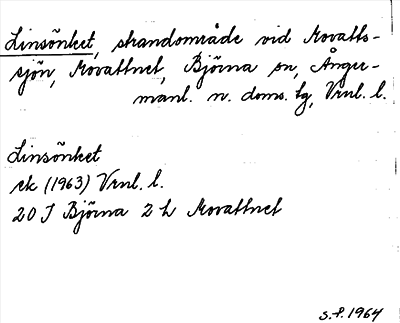 Linsönket, strandområde vid Movatts-
sjön, Movattnet, Björna sn, Ånger-
manl. n. doms. tg, Vrnl. l.
Linsönket
ek (1963) Vrnl. l.
20 J Björna 2 h Movattnet
S.P. 1964